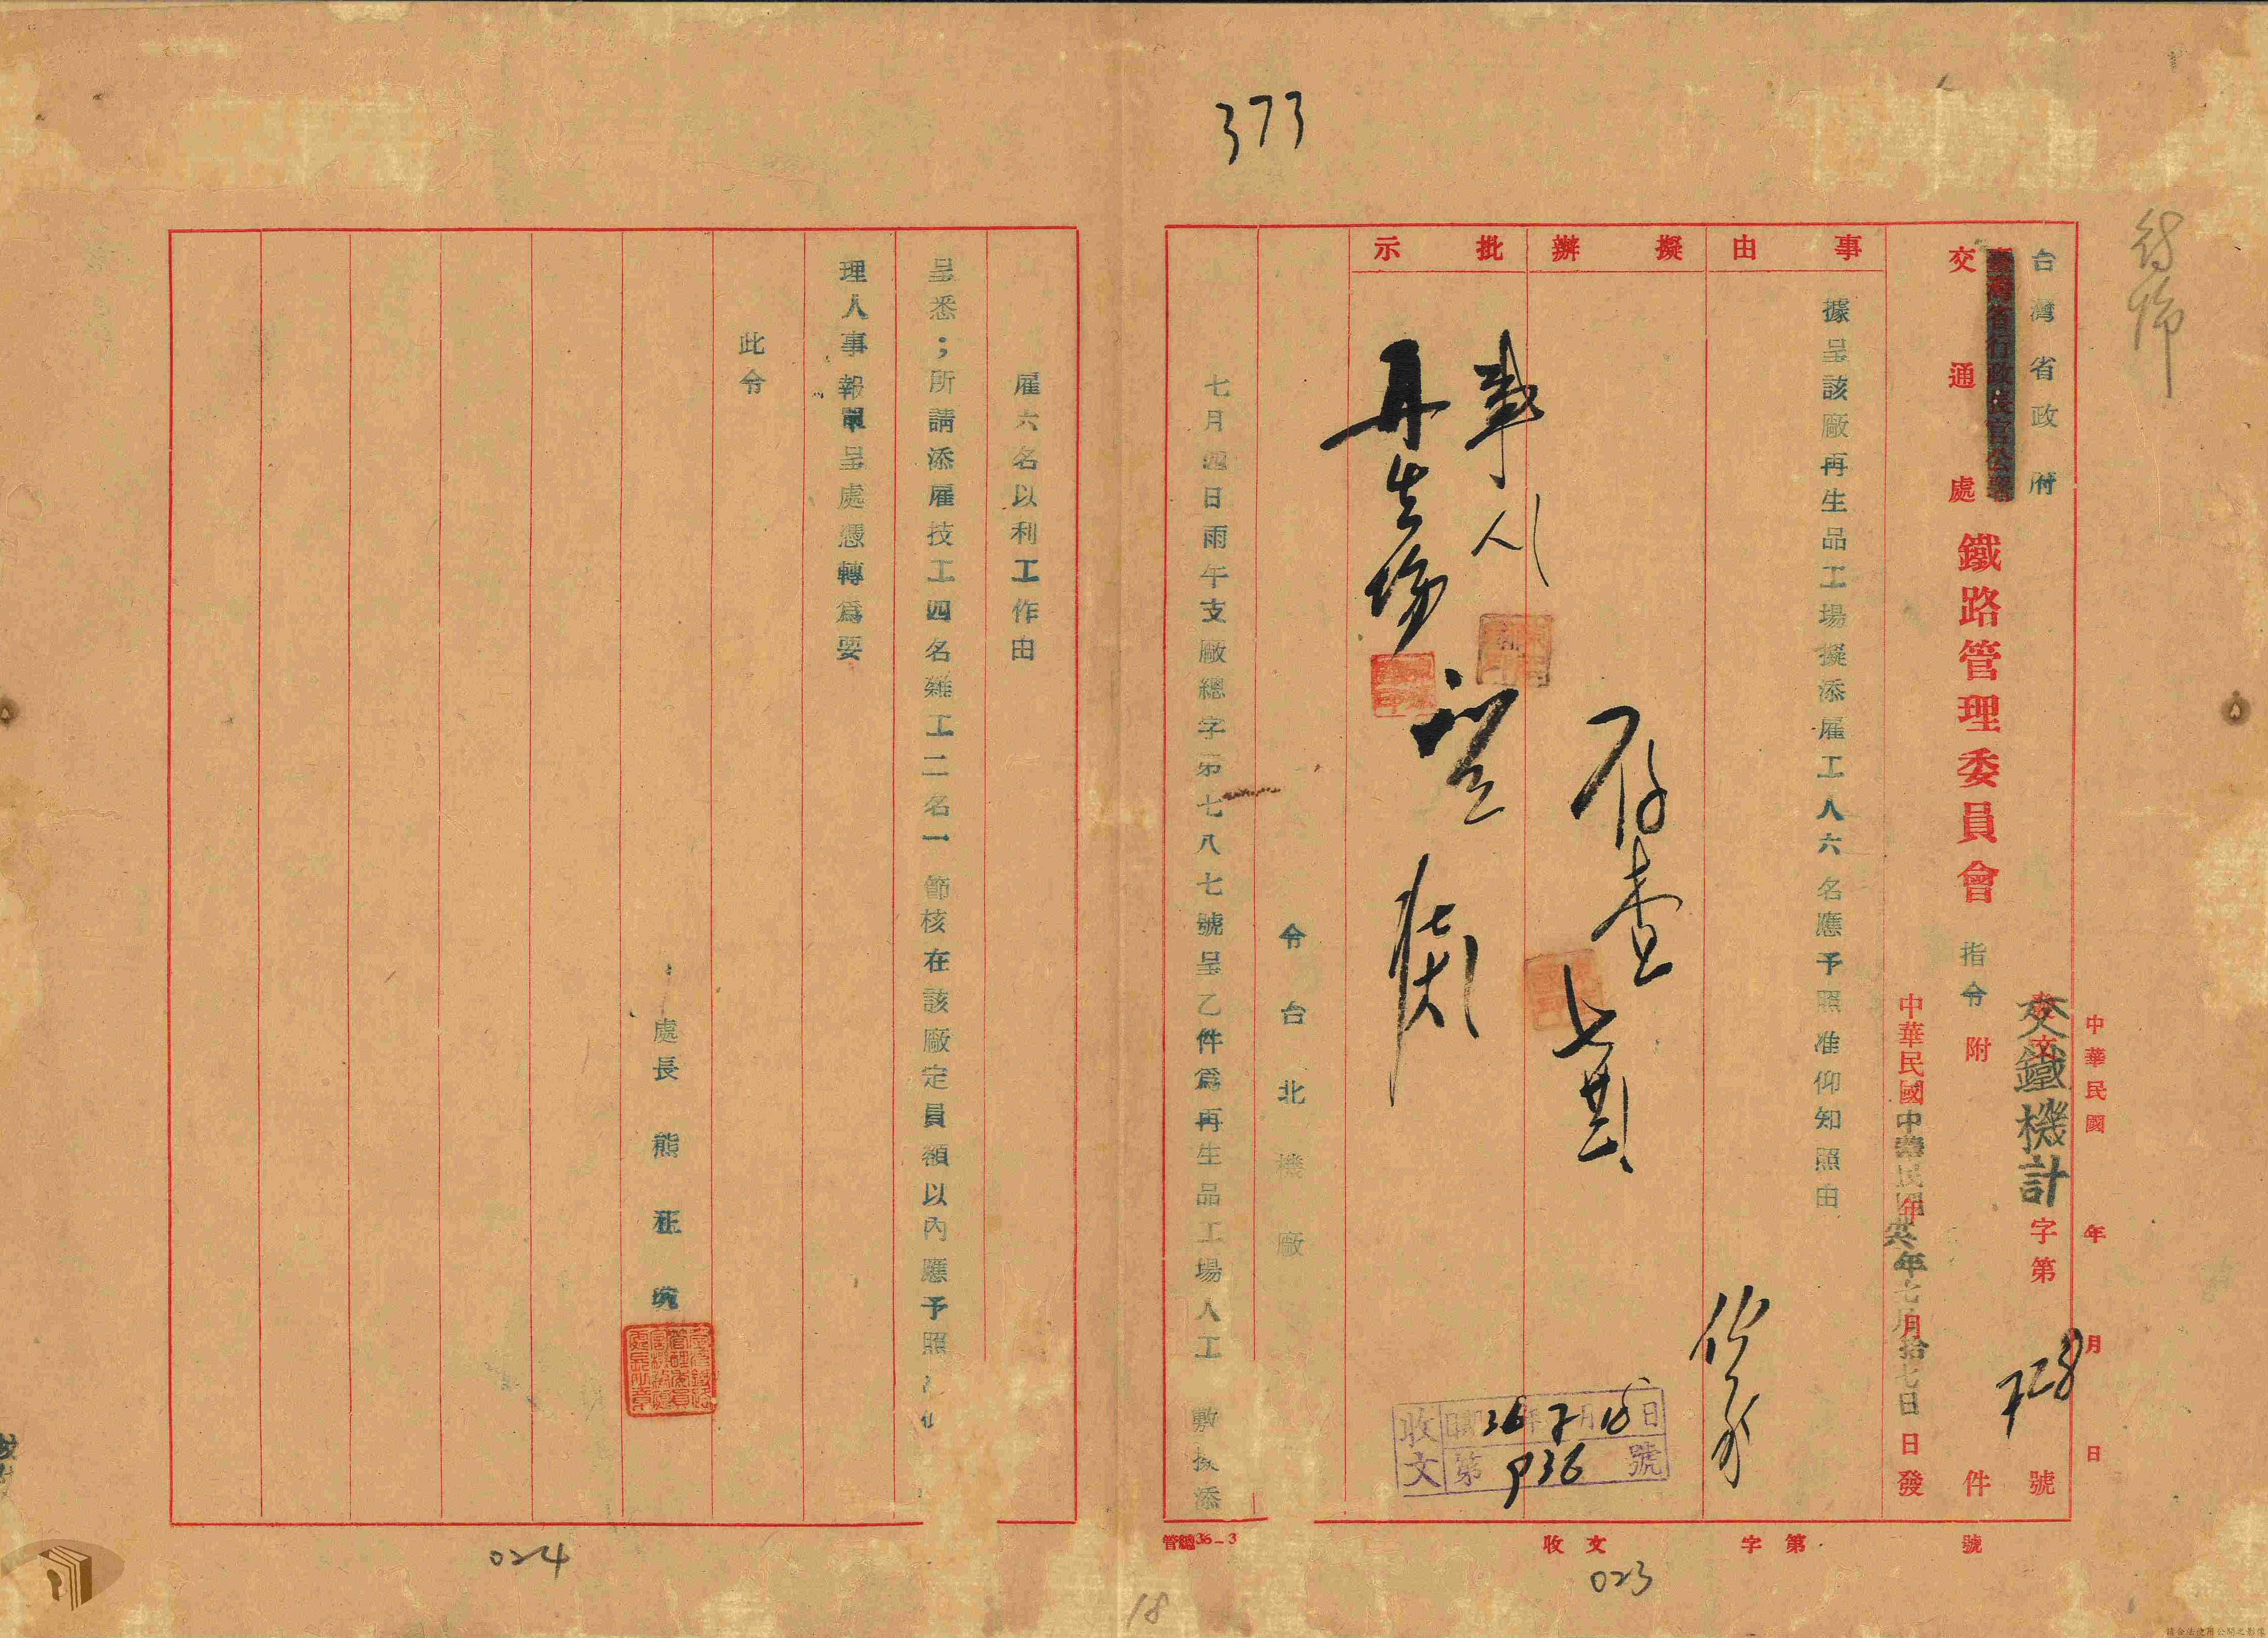 373
台灣省政府
臺灣省行政長官公署
交通處
鐵路管理委員會
指令
附件
中華民國 年 月 日
發文 字第 號
交鐵機計
728
中華民國 年 月 日發
中華民國卅六年七月拾七日
事由
據呈該廠再生品工場擬添雇工人六名應予照准仰知照由
擬辦
存查
批示
事人
再生場
令台北機廠
七月四日雨午支廠總字第七八七號呈乙件為再生品工場人工 敷擬添
雇六名以利工作由
呈悉;所請添雇技工四名雜工二名一節核在該廠定員額以內應予照
理人事報單呈處憑轉為要
此令
處長 熊正琬
收文
36年7月18日
第936號
管總36-3
收文 字第 號
023
024
18